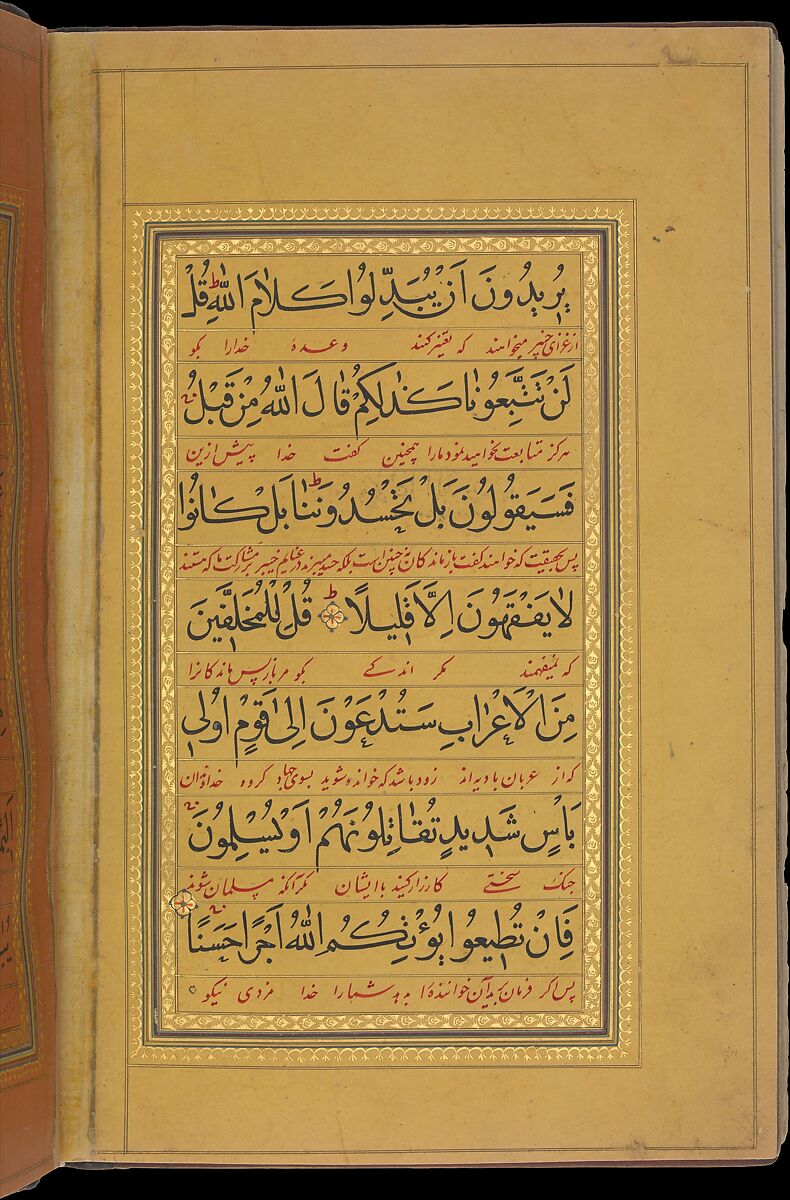 يُرِيدُونَ اَنْ يُبَدِّلُوا كَلَامَ اللّٰهِ ط قُلْ
ازغزای خیبر میخواهند که تغییر کنند وعدهٔ خدارا بگو
لَنْ تَتَّبِعُونَا كَذٰلِكُمْ قَالَ اللّٰهُ مِنْ قَبْلُ
هرگز متابعت نخواهید نمود مارا همچنین گفت خدا پیش ازین
فَسَيَقُولُونَ بَلْ تَحْسُدُونَنَا ط بَلْ كَانُوا
پس بحقیقت که خواهند گفت بازماندکان نه چنین است بلکه حسد میبرند در غنایم خیبر بر مشارکت ما که هستند
لَا يَفْقَهُونَ اِلَّا قَلِيلًا ط قُلْ لِلْمُخَلَّفِينَ
که نمیفهمند مکر اندکے بکو مر بازپس ماندکانرا
مِنَ الْاَعْرَابِ سَتُدْعَوْنَ اِلٰى قَوْمٍ اُولِى
که از عربان بادیه اند زود باشد که خوانده شوید بسوی جهاد کروه خداوندان
بَاْسٍ شَدِيدٍ تُقَاتِلُونَهُمْ اَوْ يُسْلِمُونَ
جنک سختے کارزار کنید با ایشان مکر آنکه مسلمان شوند
فَاِنْ تُطِيعُوا يُؤْتِكُمُ اللّٰهُ اَجْرًا حَسَنًا
پس اکر فرمان برید آن خواننده را بدهد شمارا خدا مزدی نیکو